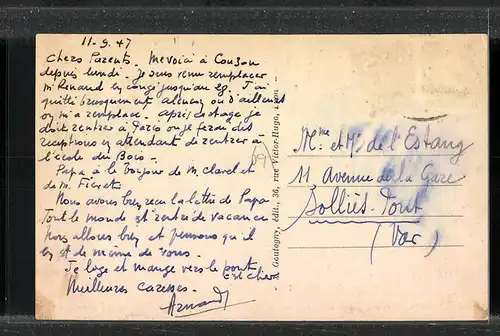 11-9-47
Chers Parents. Me voici à Couzon
depuis lundi. je suis venu remplacer
Mr Renaud en congé jusqu'au 29. J'ai
quitté brusquement où d'ailleurs
on m'a remplacé. Après ce stage je
dois rentrer à Paris où je ferai des
réceptions en attendant de rentrer à
l'école du Bois.
Papa a le bonjour de M. Clavel et
de M.
Nous avons bien reçu la lettre de Papa
Tout le monde est rentré de vacances
Nous allons bien et pensons qu'il
en est de même de vous.
Je loge et mange vers le pont
C'est cher.
Meilleures caresses.
Armand
Goutagny, édit., 36, rue Victor-Hugo, Lyon
Mme et Mr de l'Estang
11 Avenue de la Gare
Solliès-Pont
(Var)